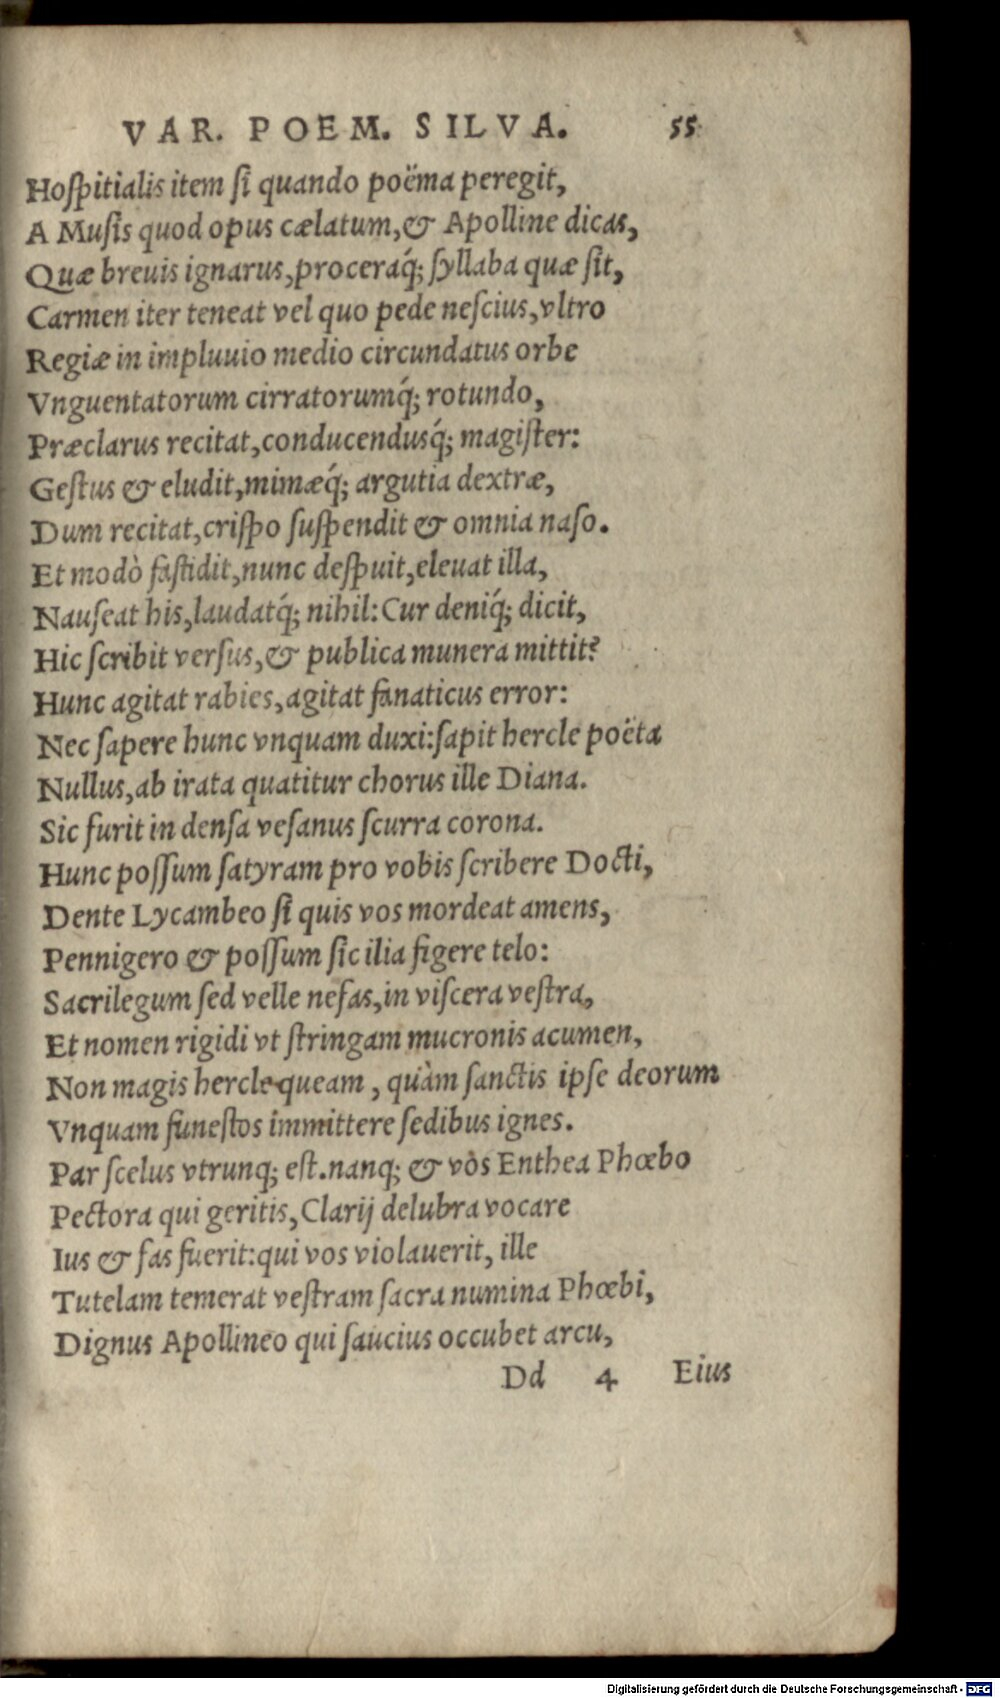 VAR. POEM. SILVA. 55
Hoſpitialis item ſi quando poëma peregit,
A Muſis quod opus cælatum,& Apolline dicas,
Quæ breuis ignarus,proceraq́; ſyllaba quæ ſit,
Carmen iter teneat vel quo pede neſcius,vltro
Regiæ in impluuio medio circundatus orbe
Vnguentatorum cirratorumq́; rotundo,
Præclarus recitat,conducendusq́; magiſter:
Geſtus & eludit,mimæq́; argutia dextræ,
Dum recitat,criſpo ſuſpendit & omnia naſo.
Et modò faſtidit,nunc deſpuit,eleuat illa,
Nauſeat his,laudatq́; nihil:Cur deniq́; dicit,
Hic ſcribit verſus,& publica munera mittit?
Hunc agitat rabies,agitat fanaticus error:
Nec ſapere hunc vnquam duxi:ſapit hercle poëta
Nullus,ab irata quatitur chorus ille Diana.
Sic furit in denſa veſanus ſcurra corona.
Hunc poſſum ſatyram pro vobis ſcribere Docti,
Dente Lycambeo ſi quis vos mordeat amens,
Pennigero & poſſum ſic ilia figere telo:
Sacrilegum ſed velle nefas,in viſcera veſtra,
Et nomen rigidi vt ſtringam mucronis acumen,
Non magis hercle queam , quàm ſanctis ipſe deorum
Vnquam funeſtos immittere ſedibus ignes.
Par ſcelus vtrunq; eſt.nanq; & vòs Enthea Phœbo
Pectora qui geritis,Clarij delubra vocare
Ius & fas fuerit:qui vos violauerit, ille
Tutelam temerat veſtram ſacra numina Phœbi,
Dignus Apollineo qui ſaucius occubet arcu,
Dd 4 Eius
Digitalisierung gefördert durch die Deutsche Forschungsgemeinschaft - DFG